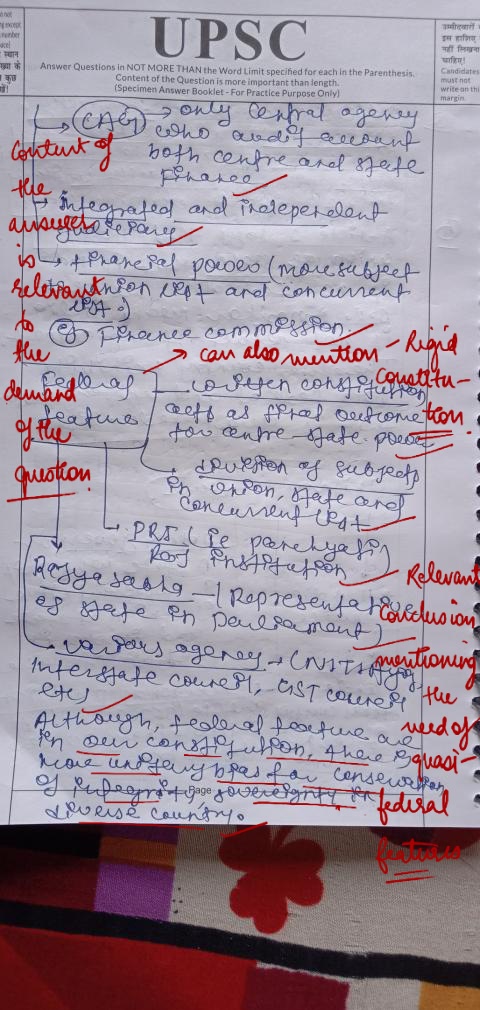 UPSC
Answer Questions in NOT MORE THAN the Word Limit specified for each in the Parenthesis.
Content of the Question is more important than length.
(Specimen Answer Booklet - For Practice Purpose Only)
उम्मीदवारों
इस हाशिए
नहीं लिखना
चाहिए।
Candidates
must not
write on this
margin.
CAG → only central agency
who audit account
both centre and state
finance
→ Integrated and independent
judiciary
→ financial power (more subject
in union list and concurrent
list.)
Finance commission.
Federal
feature
written constitution
acts as final outcome
for centre-state power
division of subjects
in union, state and
concurrent list
PRI (ie panchyati
Raj institution)
Rajya sabha — (Representative
of state in parliament)
various agency → (NITI Ayog
Interstate council, GST council
etc)
Although, federal feature are
in our constitution, there is
more unitary bias for conservation
of integrity sovereignty in
diverse country.
Page
Content of
the
answer
is
relevant
to
the
demand
of the
question
can also mention - Rigid
constitu-
tion.
Relevant
conclusion
mentioning
the
need of
quasi-
federal
features